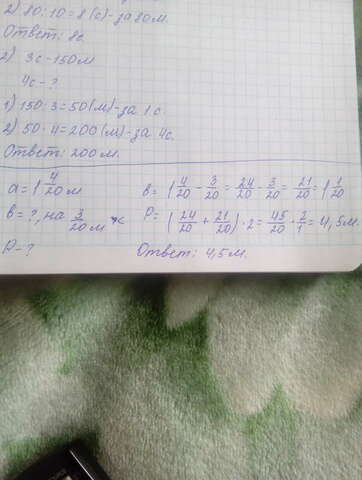 2) 80 : 10 = 8 (с) - за 80 м.
Ответ: 8с
2) 3с - 150 м
4с - ?
1) 150 : 3 = 50 (м) - за 1 с.
2) 50 · 4 = 200 (м) - за 4с.
Ответ: 200 м.
a = 1 4/20 м
b = 1 4/20 - 3/20 = 24/20 - 3/20 = 21/20 = 1 1/20
b = ?, на 3/20 м <
P = (24/20 + 21/20) · 2 = 45/20 · 2/1 = 4,5 м.
P - ?
Ответ: 4,5 м.